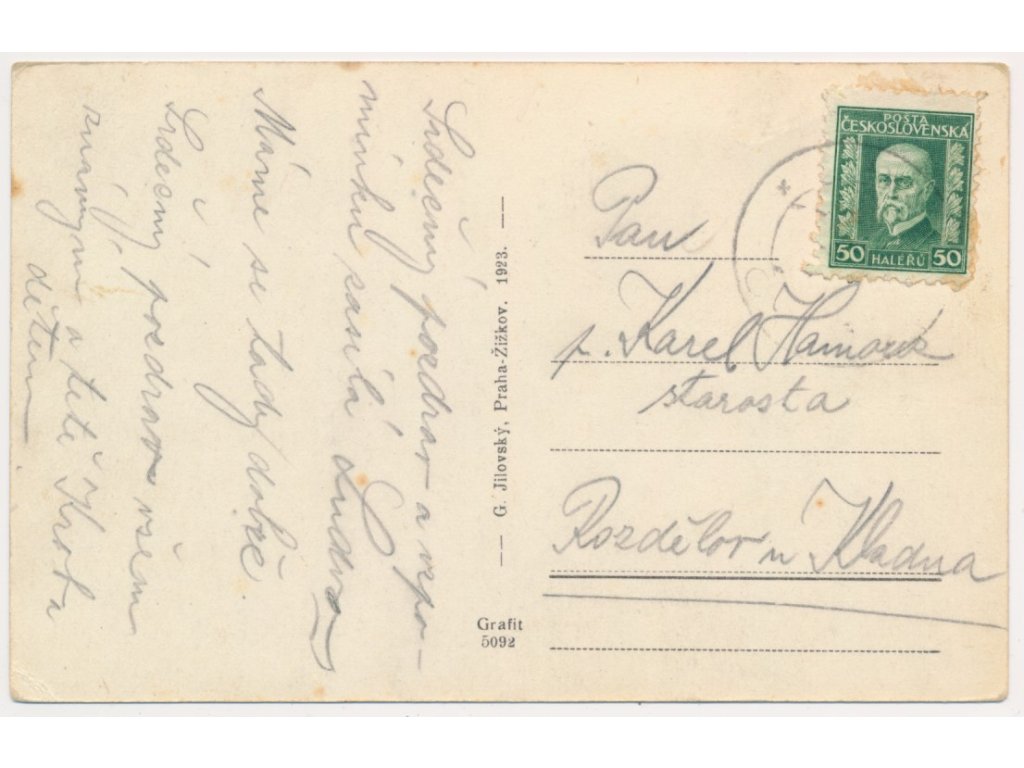 Srdečný pozdrav a vzpo-
mínku zasílá Ludva
Máme se tady dobře
Srdečný pozdrav všem
známým a tetě
dětem
G. Jílovský, Praha-Žižkov, 1923.
Grafit
5092
POŠTA
ČESKOSLOVENSKÁ
50 HALÉŘŮ 50
Pan
p. Karel
starosta
Rozdělov u Kladna